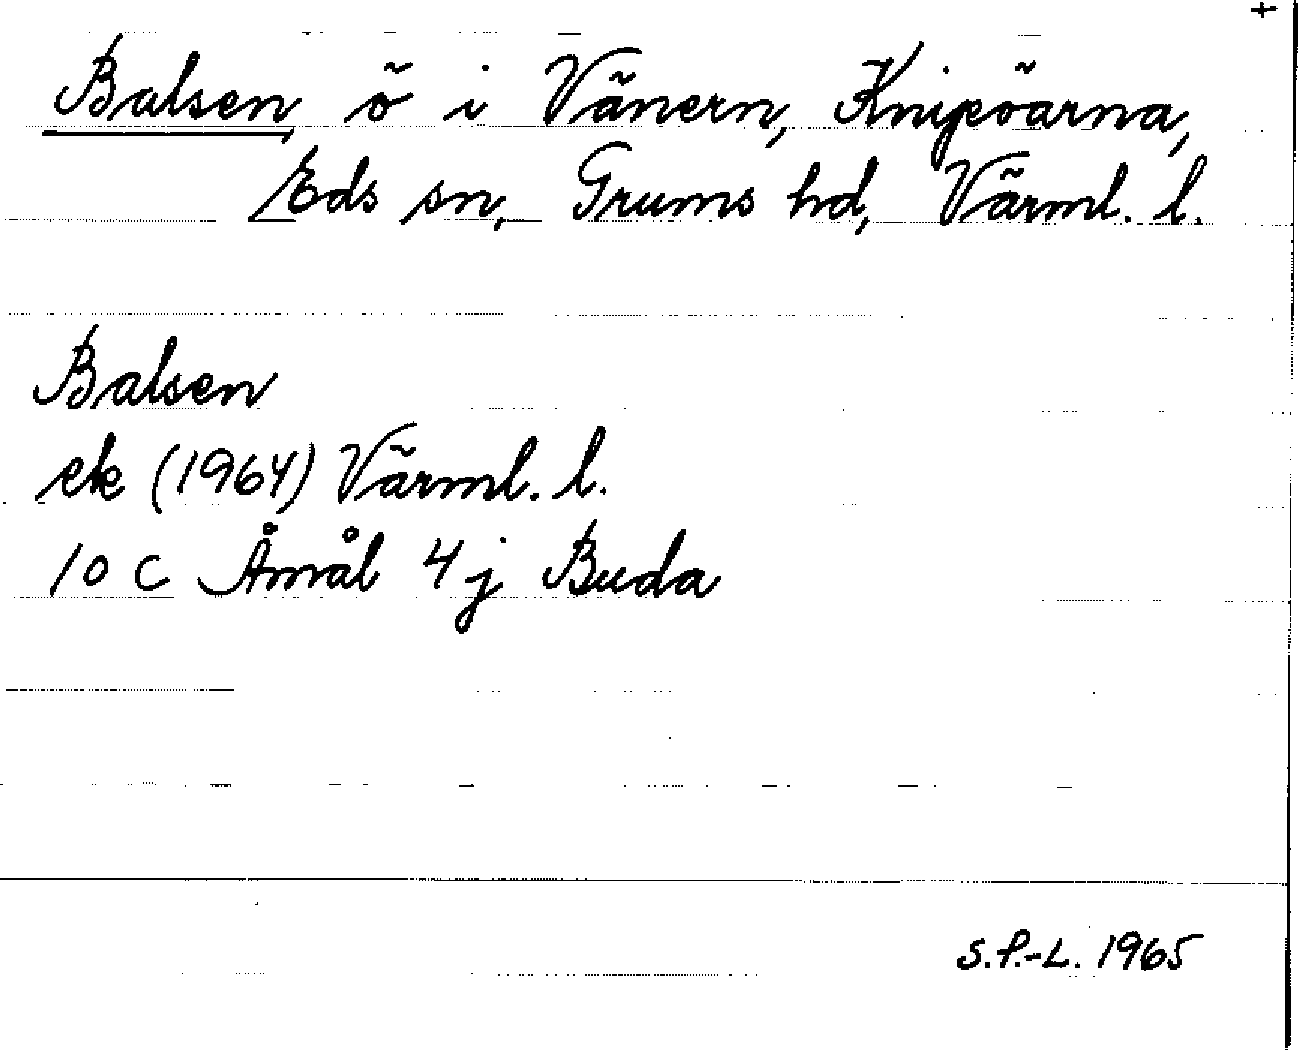 +
Balsen, ö i Vänern, Knipöarna,
Eds sn, Grums hd, Värml. l.
Balsen
ek (1964) Värml. l.
10 C Åmål 4 j Buda
S.P.-L. 1965